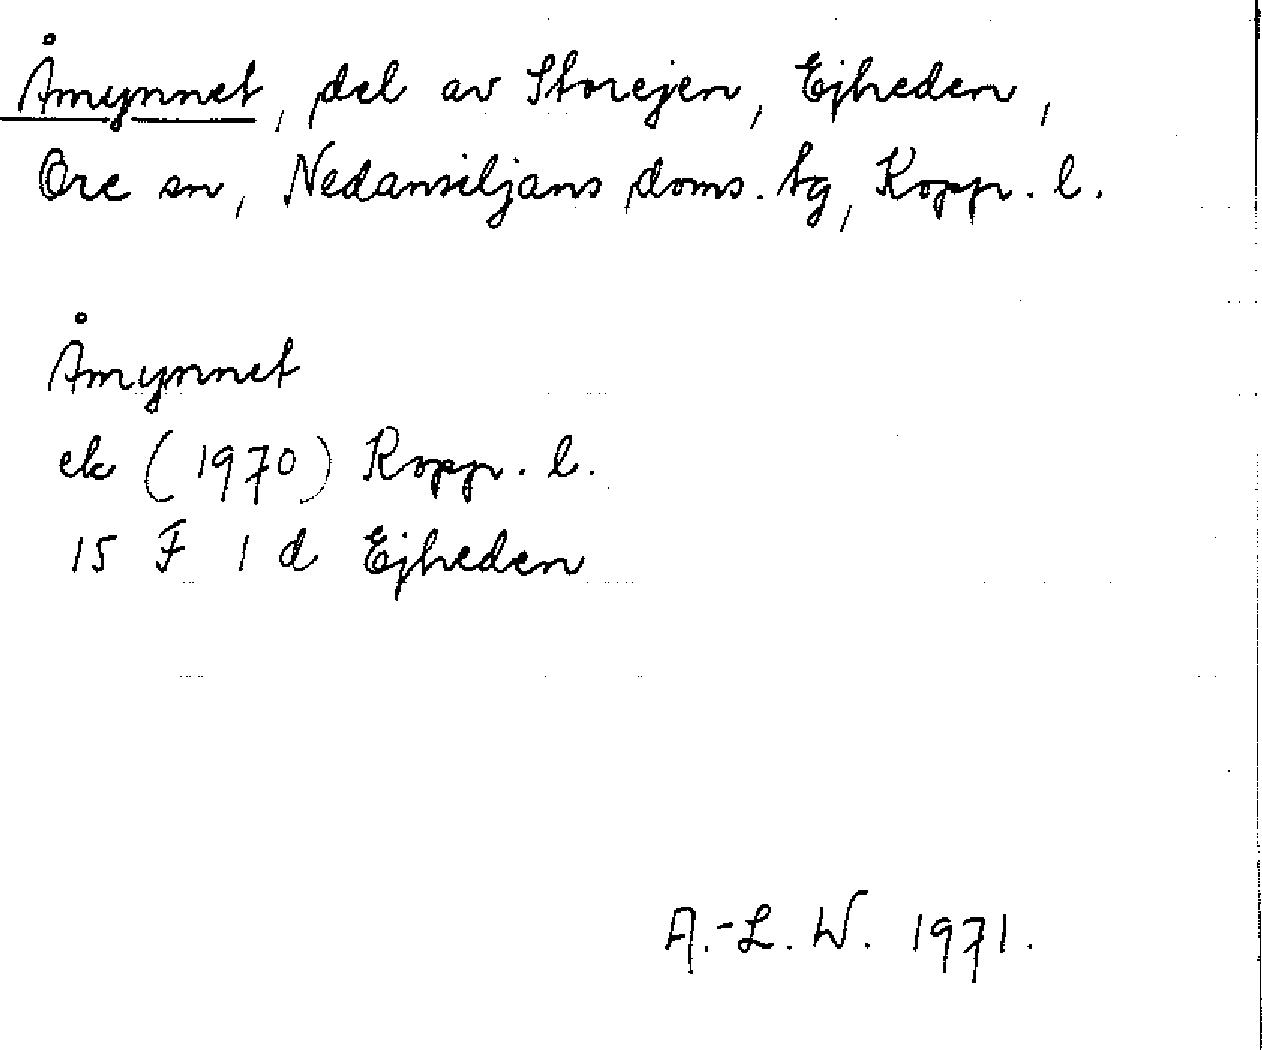 Åmynnet, del av Storejen, Ejheden,
Ore sn, Nedansiljans doms. tg, Kopp. l.
Åmynnet
ek (1970) Kopp. l.
15 F 1 d Ejheden
A.-L. W. 1971.